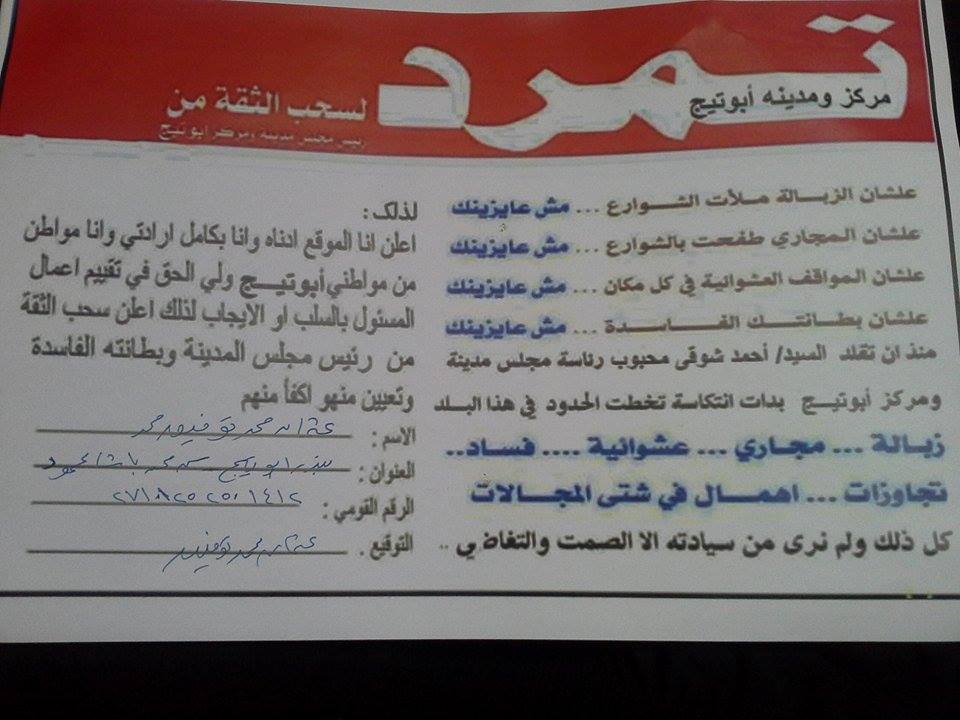 تمرد
مركز ومدينه أبوتيج
لسحب الثقة من
رئيس مجلس مدينة ومركز ابوتيج
علشان الزبالة ملأت الشوارع ... مش عايزينك
علشان المجاري طفحت بالشوارع ... مش عايزينك
علشان المواقف العشوائية في كل مكان ... مش عايزينك
علشان بطانتك الفاسدة ... مش عايزينك
منذ ان تقلد السيد/ أحمد شوقى محبوب رئاسة مجلس مدينة
ومركز أبوتيج بدات انتكاسة تخطت الحدود في هذا البلد
زبالة ... مجاري ... عشوائية .... فساد..
تجاوزات ... اهمال في شتى المجالات
كل ذلك ولم نرى من سيادته الا الصمت والتغاضي ..
لذلك :
اعلن انا الموقع ادناه وانا بكامل ارادتي وانا مواطن
من مواطني أبوتيج ولي الحق في تقييم اعمال
المسئول بالسلب او الايجاب لذلك اعلن سحب الثقة
من رئيس مجلس المدينة وبطانته الفاسدة
وتعيين منهو اكفأ منهم
الاسم : محمد توفيق محمد
العنوان : بندر ابوتيج
الرقم القومي :
التوقيع . محمد توفيق